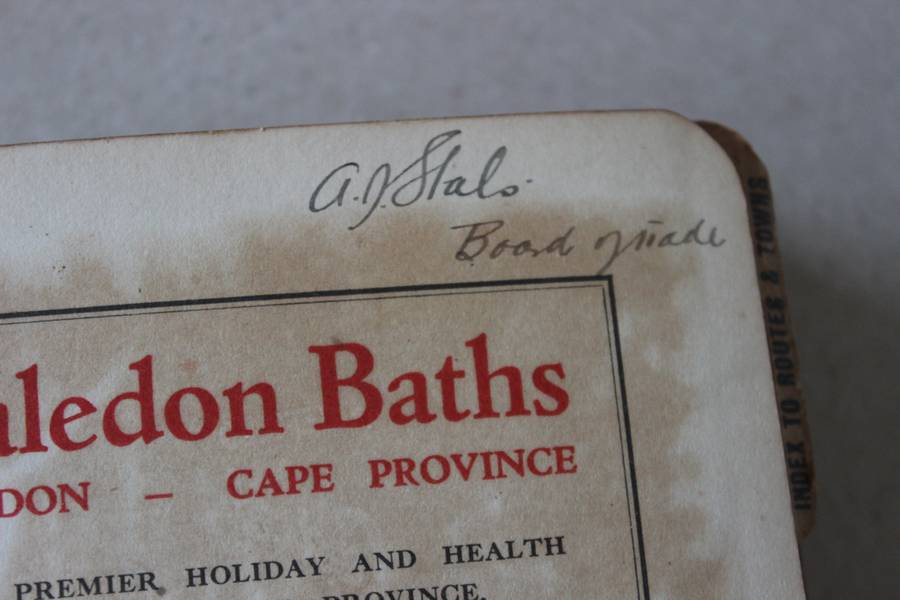 A.J. Stals.
Board of Trade
aledon Baths
DON – CAPE PROVINCE
PREMIER HOLIDAY AND HEALTH
PROVINCE.
INDEX TO ROUTES & TOWNS